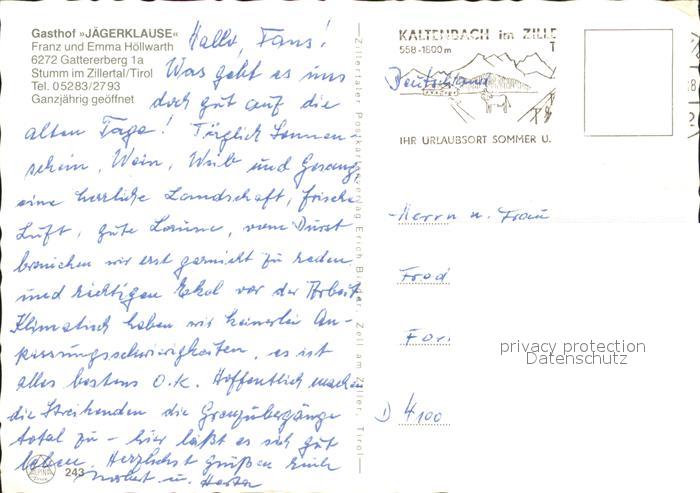 Gasthof »JÄGERKLAUSE«
Franz und Emma Höllwarth
6272 Gattererberg 1a
Stumm im Zillertal/Tirol
Tel. 05283/2793
Ganzjährig geöffnet
Hallo, Fans!
Was geht es uns
doch gut auf die
alten Tage! Täglich Sonnen-
schein, Wein, Weib und Gesang
eine herrliche Landschaft, frische
Luft, gute Laune, vom Durst
brauchen wir erst garnicht zu reden
und richtigen Ekel vor der Arbeit
Klimatisch haben wir keinerlei An-
passungsschwierigkeiten, es ist
alles bestens O.K. Hoffentlich machen
die Streikenden die Grenzübergänge
total zu - hier läßt es sich gut
leben. Herzlichst grüßen Euch
Norbert u.
ALPINA
243
Zillertaler Postkartenverlag Erich Zell am Ziller, Tirol
KALTENBACH im ZILLE
T
558-1800m
Deutschland
IHR URLAUBSORT SOMMER U.
Herrn u. Frau
Fred
D 4100
privacy protection
Datenschutz